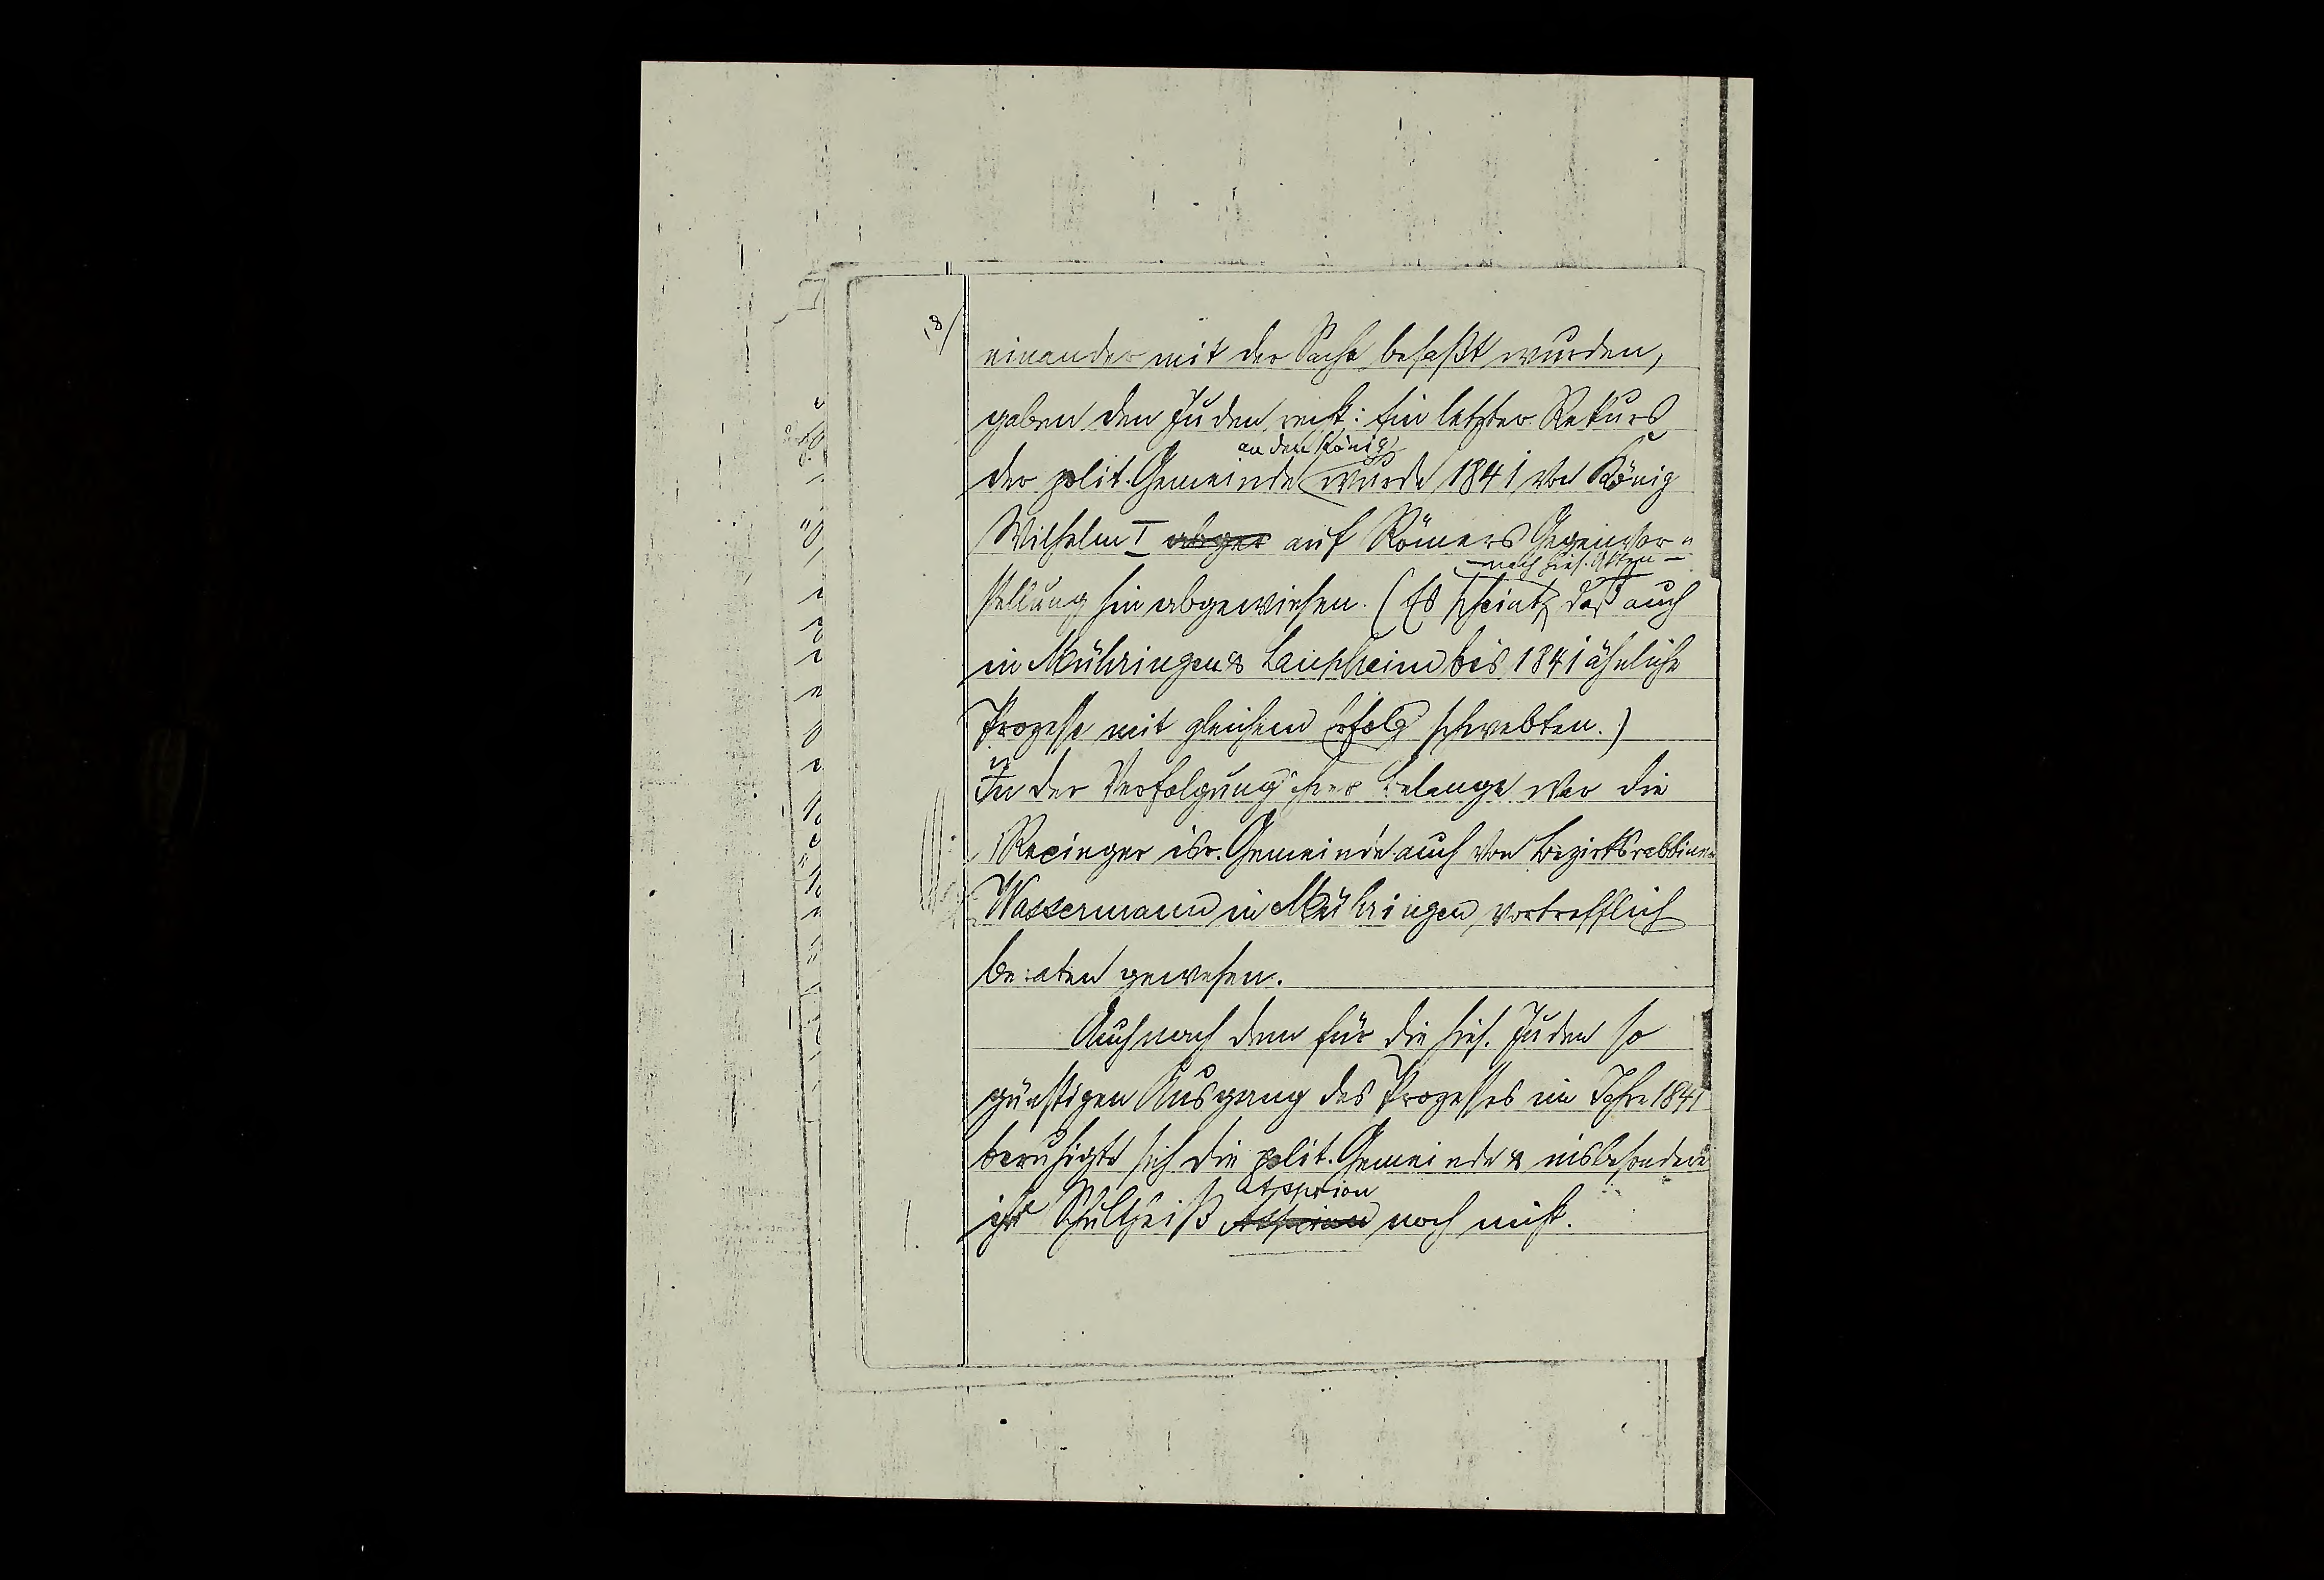 18/
einander mit der Sache befaßt wurden,
gaben den Juden recht: Ein letzter Rekurs
an den König
der polit. Gemeinde wurde 1841 von König
Wilhelm I abger auf Römers Gegenvor-
- nach hies. Akten -
stellung hin abgewiesen. (Es scheint, daß auch
in Mühringen & Laupheim bis 1841 ähnliche
Prozesse mit gleichem Erfolg schwebten.)
In der Verfolgung ihrer Belange war die
Rexinger isr. Gemeinde auch von Bezirksrabbiner
Wassermann in Mühringen, vortrefflich
beraten gewesen.
Auch nach dem für die hies. Juden so
günstigen Ausgang des Prozesses im Jahre 1841
beruhigte sich die polit. Gemeinde & insbesondere
ihr Schultheiß noch nicht.